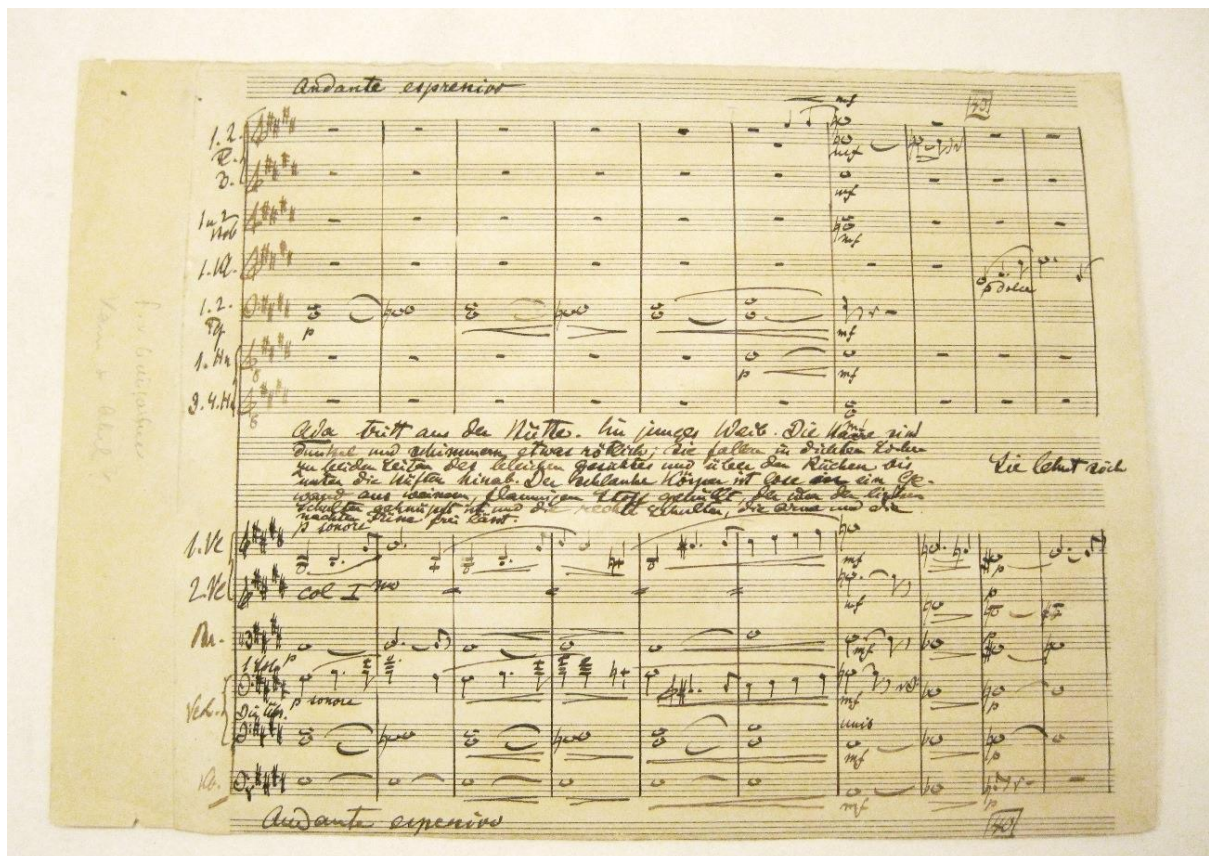 Andante espressivo
mf
40
1. 2.
Fl.
3.
mf
mf
1 u 2
Hob
mf
1. Kl.
p dolce
1. 2.
Fg.
p
mf
1. Hn
p
mf
3. 4. Hn
mf
Ada tritt aus der Hütte. Ein junges Weib. Die Haare sind
dunkel und schimmern etwas rötlich; sie fallen in dichten Locken
zu beiden Seiten des bleichen Gesichtes und über den Rücken bis
unter die Hüften hinab. Der schlanke Körper ist lose in ein Ge-
wand aus weissem, flaumigen Stoff gehüllt, der über der linken
Schulter geknüpft ist und die rechte Schulter, die Arme und die
nackten Füsse frei lässt.
Sie lehnt sich
p sonore
1. Vl
mf
p
2. Vl
col I mo
mf
p
Br.
p
mf
1. Solo
p sonore
mf
p
Vcl.
Die übr.
unis
mf
p
Kb.
mf
p
Andante espressivo
40